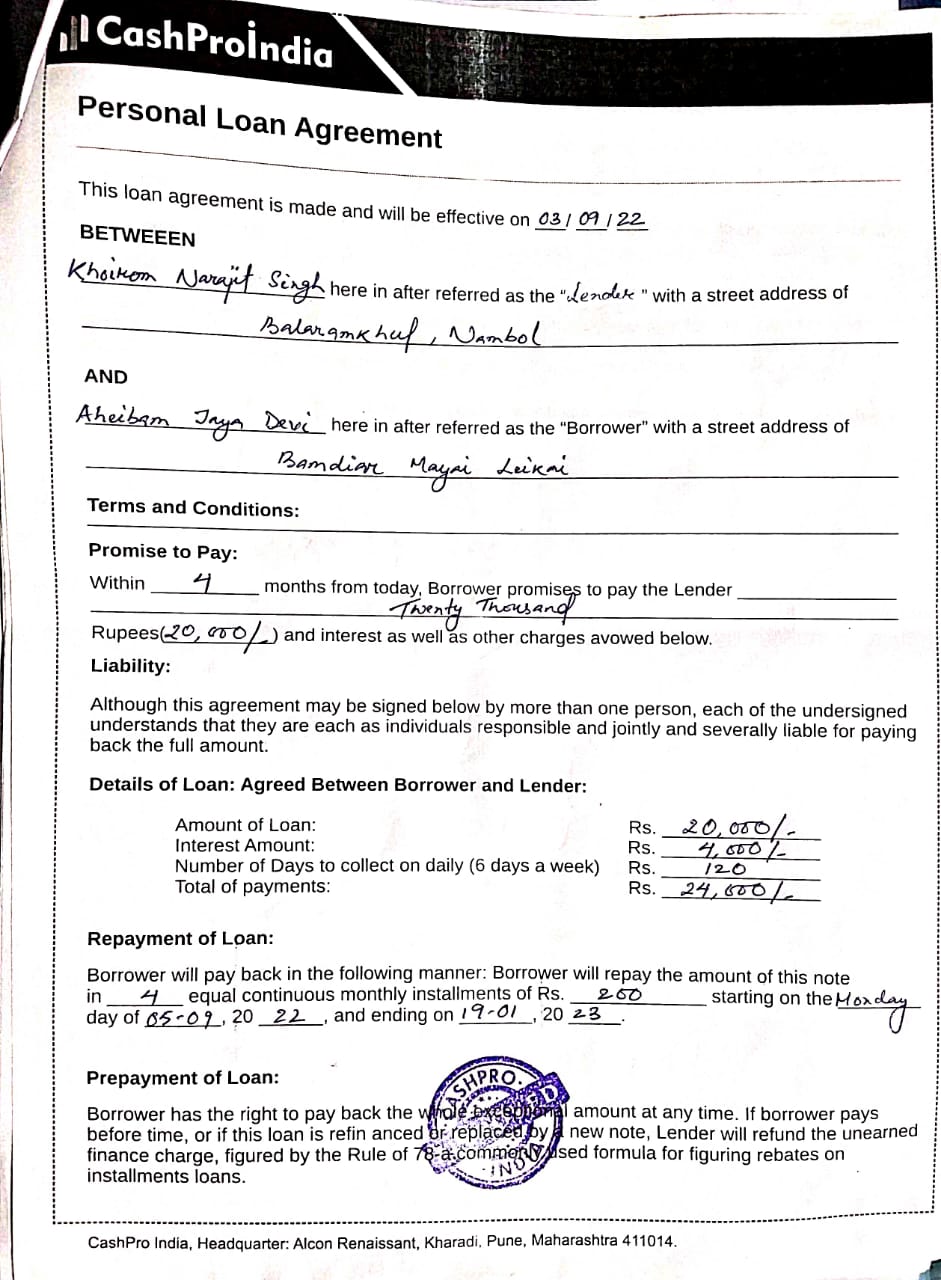 CashProİndia
Personal Loan Agreement
This loan agreement is made and will be effective on 03/09/22
BETWEEEN
Khoirom Narajit Singh here in after referred as the "Lender" with a street address of
Balaramkhul, Nambol
AND
Aheibam Jaya Devi here in after referred as the "Borrower" with a street address of
Bamdiar Mayai Leikai
Terms and Conditions:
Promise to Pay:
Within 4 months from today, Borrower promises to pay the Lender
Twenty Thousand
Rupees(20,000/-) and interest as well as other charges avowed below.
Liability:
Although this agreement may be signed below by more than one person, each of the undersigned
understands that they are each as individuals responsible and jointly and severally liable for paying
back the full amount.
Details of Loan: Agreed Between Borrower and Lender:
Amount of Loan: Rs. 20,000/-
Interest Amount: Rs. 4,000/-
Number of Days to collect on daily (6 days a week) Rs. 120
Total of payments: Rs. 24,000/-
Repayment of Loan:
Borrower will pay back in the following manner: Borrower will repay the amount of this note
in 4 equal continuous monthly installments of Rs. 200 starting on the Monday
day of 05-09, 20 22, and ending on 19-01, 20 23.
Prepayment of Loan:
CASHPRO.
Borrower has the right to pay back the whole exceptional amount at any time. If borrower pays
before time, or if this loan is refin anced or replaced by a new note, Lender will refund the unearned
finance charge, figured by the Rule of 78-a commonly used formula for figuring rebates on
installments loans.
INDIA
CashPro India, Headquarter: Alcon Renaissant, Kharadi, Pune, Maharashtra 411014.